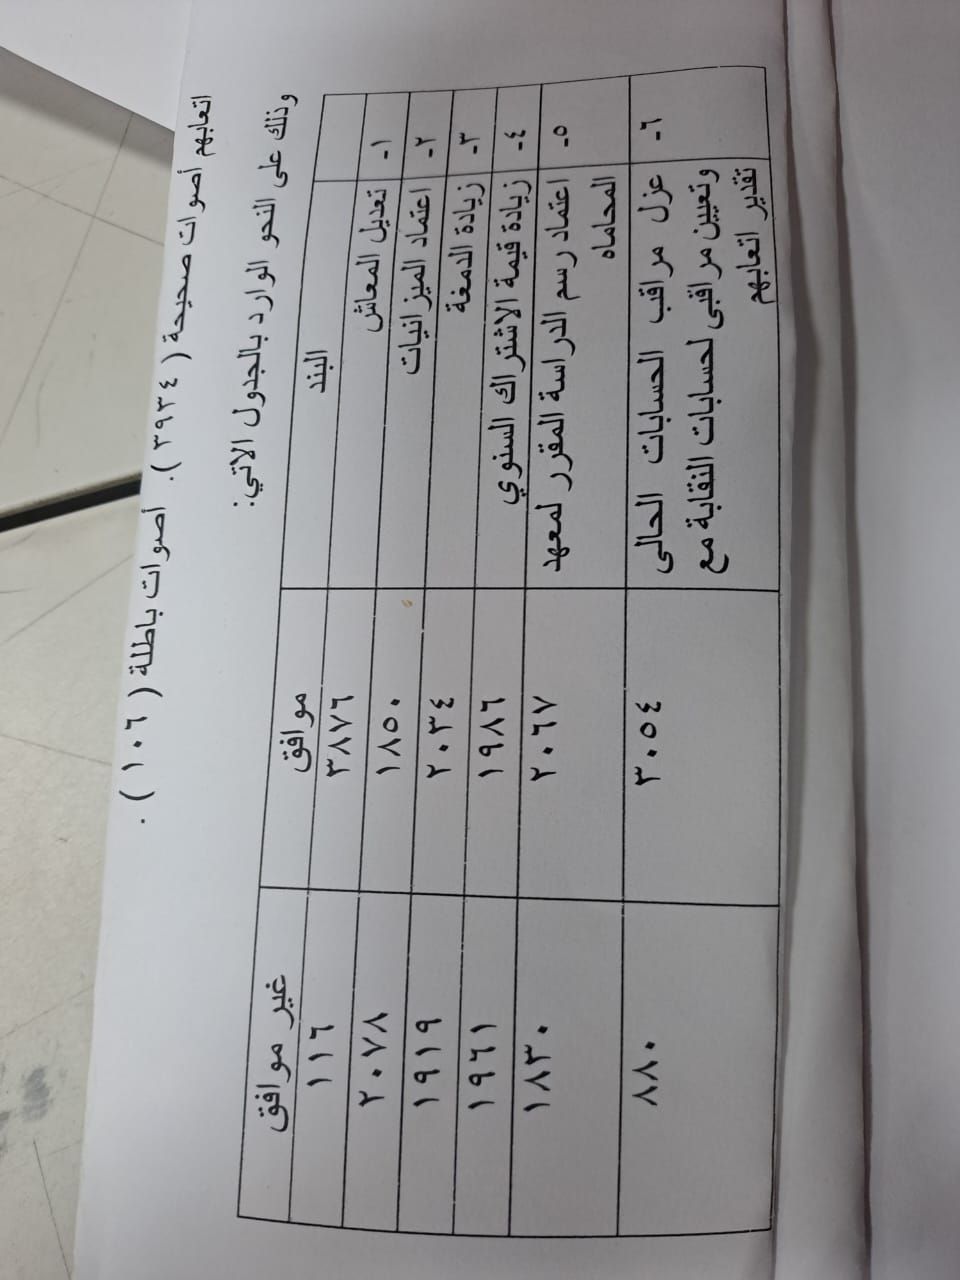 اتعابهم أصوات صحيحة ( ٣٩٣٤ ). أصوات باطلة ( ١٠٦ ) .
وذلك على النحو الوارد بالجدول الآتي:
البند موافق غير موافق
١- تعديل المعاش ٣٨٧٦ ١١٦
٢- اعتماد الميزانيات ١٨٥٠ ٢٠٧٨
٣- زيادة الدمغة ٢٠٣٤ ١٩١٩
٤- زيادة قيمة الاشتراك السنوي ١٩٨٦ ١٩٦١
٥- اعتماد رسم الدراسة المقرر لمعهد ٢٠٦٧ ١٨٣٠
المحاماه
٦- عزل مراقب الحسابات الحالى ٣٠٥٤ ٨٨٠
وتعيين مراقبى لحسابات النقابة مع
تقدير اتعابهم